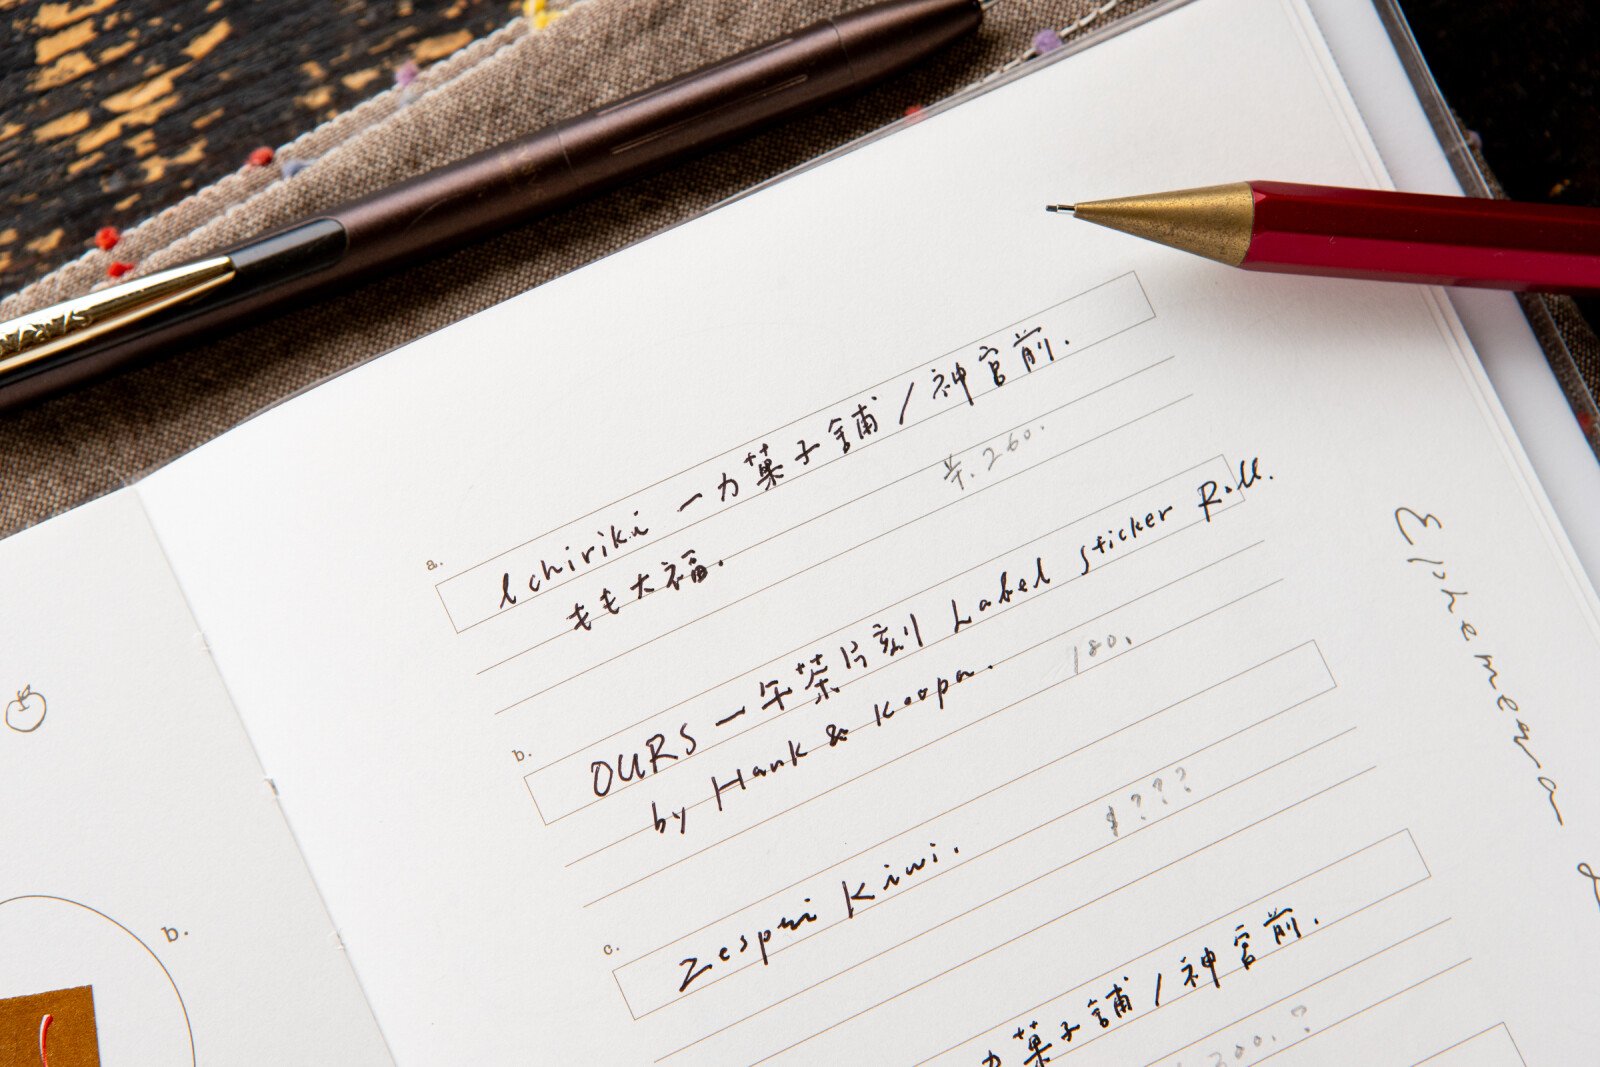 a.
Ichiriki 一力菓子舗/神宮前.
もも大福.
¥.260.
b.
OURS 一午茶片刻 Label Sticker Roll.
by Hank & Koopa.
180.
c.
Zespri Kiwi.
$???
力菓子舗/神宮前.
300.?
Ephemera
b.